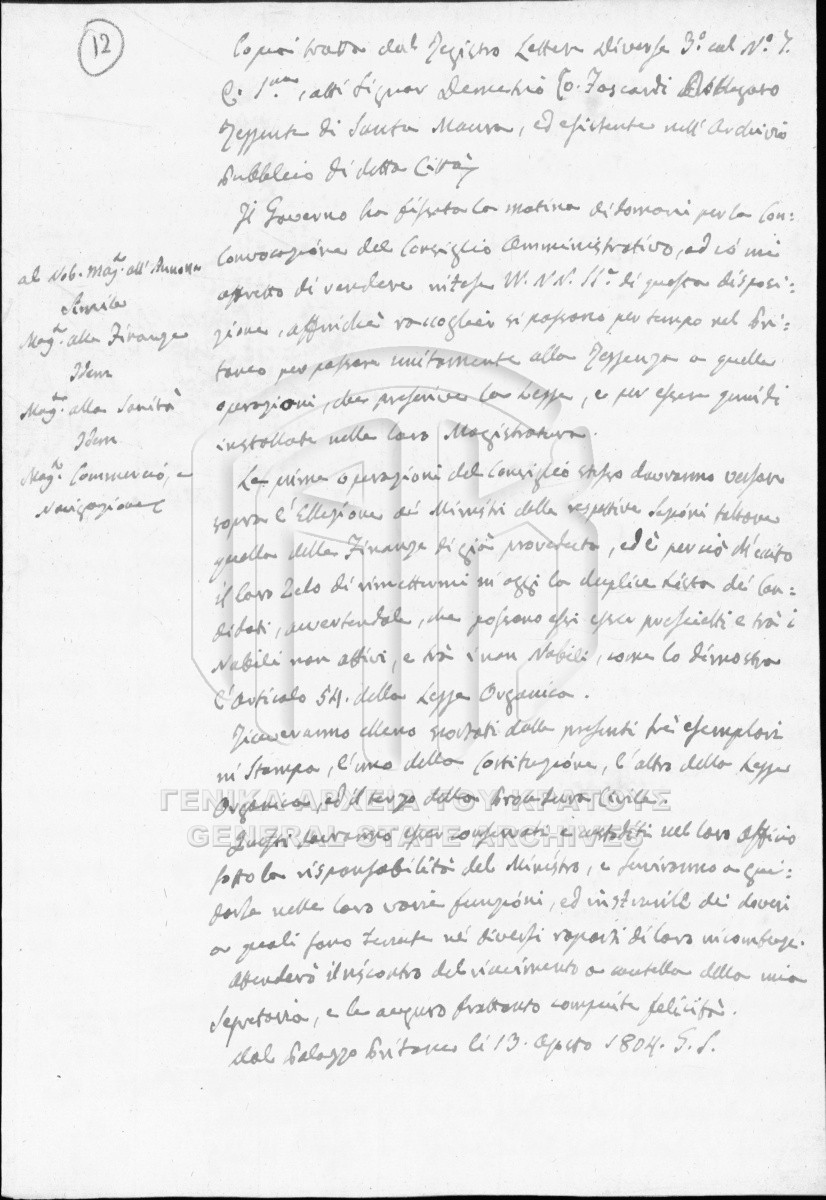 12
Copia tratta dal Registro Lettere Diverse 3.º col Nº. 7.
Signor Demetrio Co: Foscardi
Reggente di Santa Maura, ed esistente nell'Archivio
Pubblico di detta Città
Il Governo ha fissata la matina di domani per la Con=
Convocazione del Consiglio Amministrativo, ed io mi
affretto di rendere intese W. NN. Ill.e di questa disposi=
zione, affinchè raccoglier si possano per tempo nel Pri=
taneo per passare unitamente alla Reggenza a quelle
operazioni, che prescrive la Legge, e per essere quindi
installate nella loro Magistratura.
al Nob. Mag.to all'Annona
Simile
Mag.to alla Finanza
Idem
Mag.to alla Sanità
Idem
Mag.to Commercio, e
Navigazione
Le prime operazioni del Consiglio stesso dovranno versare
sopra l'Ellezione dei Ministri delle respetive Sezioni tattone
quella della Finanza di già proveduta, ed è perciò
il loro Zelo di rimettermi in oggi la duplice Lista dei Can=
didati, avvertendole, che possono essi esser prescielti e trà i
Nobili non attivi, e trà i non Nobili, come lo dimostra
l'Articolo 54. della Legge Organica.
Riceveranno elleno scortati dalla presenti trè esemplari
in Stampa, l'uno della Costituzione, l'altro della Legge
Organica, ed il terzo della Procedura Civile.
Questi dovranno esser conservati e custoditi nel loro Officio
sotto la risponsabilità del Ministro, e serviranno a gui=
darle nelle loro varie funzioni, ed instruirle dei doveri
a quali sono tenute nei diversi rapporti di loro incombenze.
Attenderò il riscontro del ricevimento a cautella della mia
Segretaria, e le auguro frattanto compiute felicità.
Dal Palazzo Pritaneo li 13. Agosto 1804. S.
ΓΕΝΙΚΑ ΑΡΧΕΙΑ ΤΟΥ ΚΡΑΤΟΥΣ
GENERAL STATE ARCHIVES